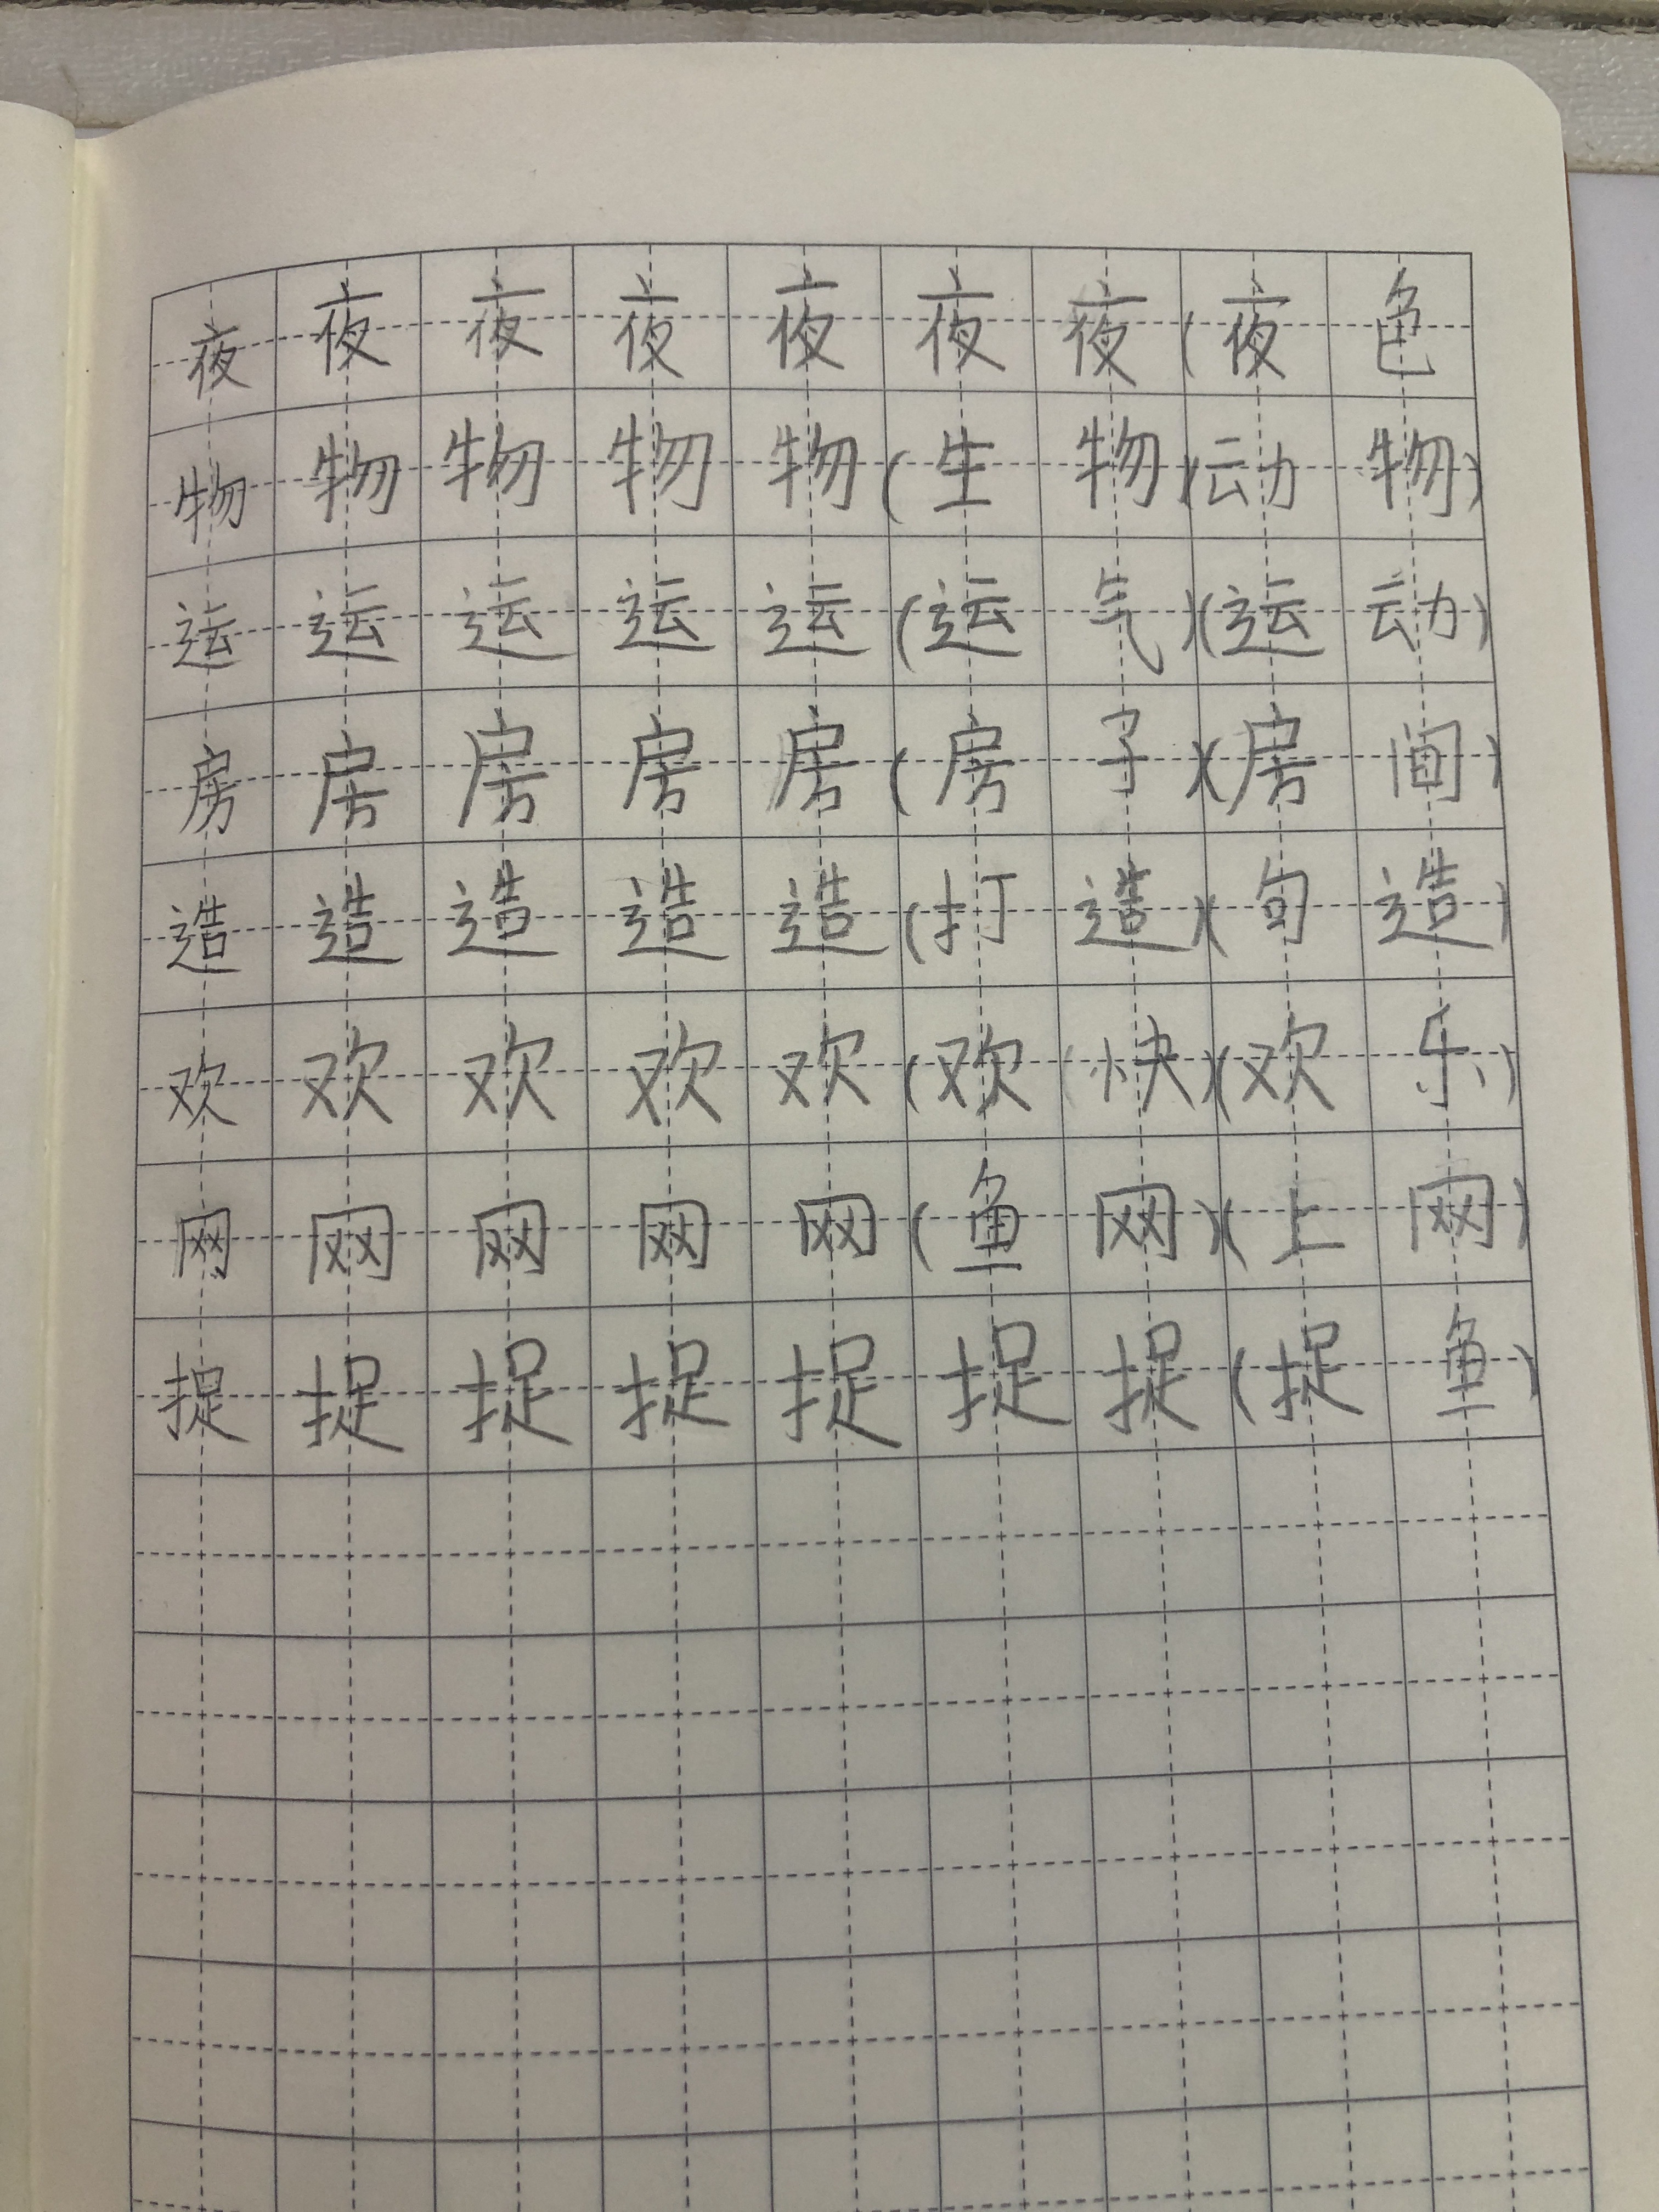 夜夜夜夜夜夜夜(夜色
物物物物物(生物)(动物)
运运运运运(运气)(运动)
房房房房房(房子)(房间)
造造造造造(打造)(句造)
欢欢欢欢欢(欢快)(欢乐)
网网网网网(鱼网)(上网)
捉捉捉捉捉捉捉(捉鱼)